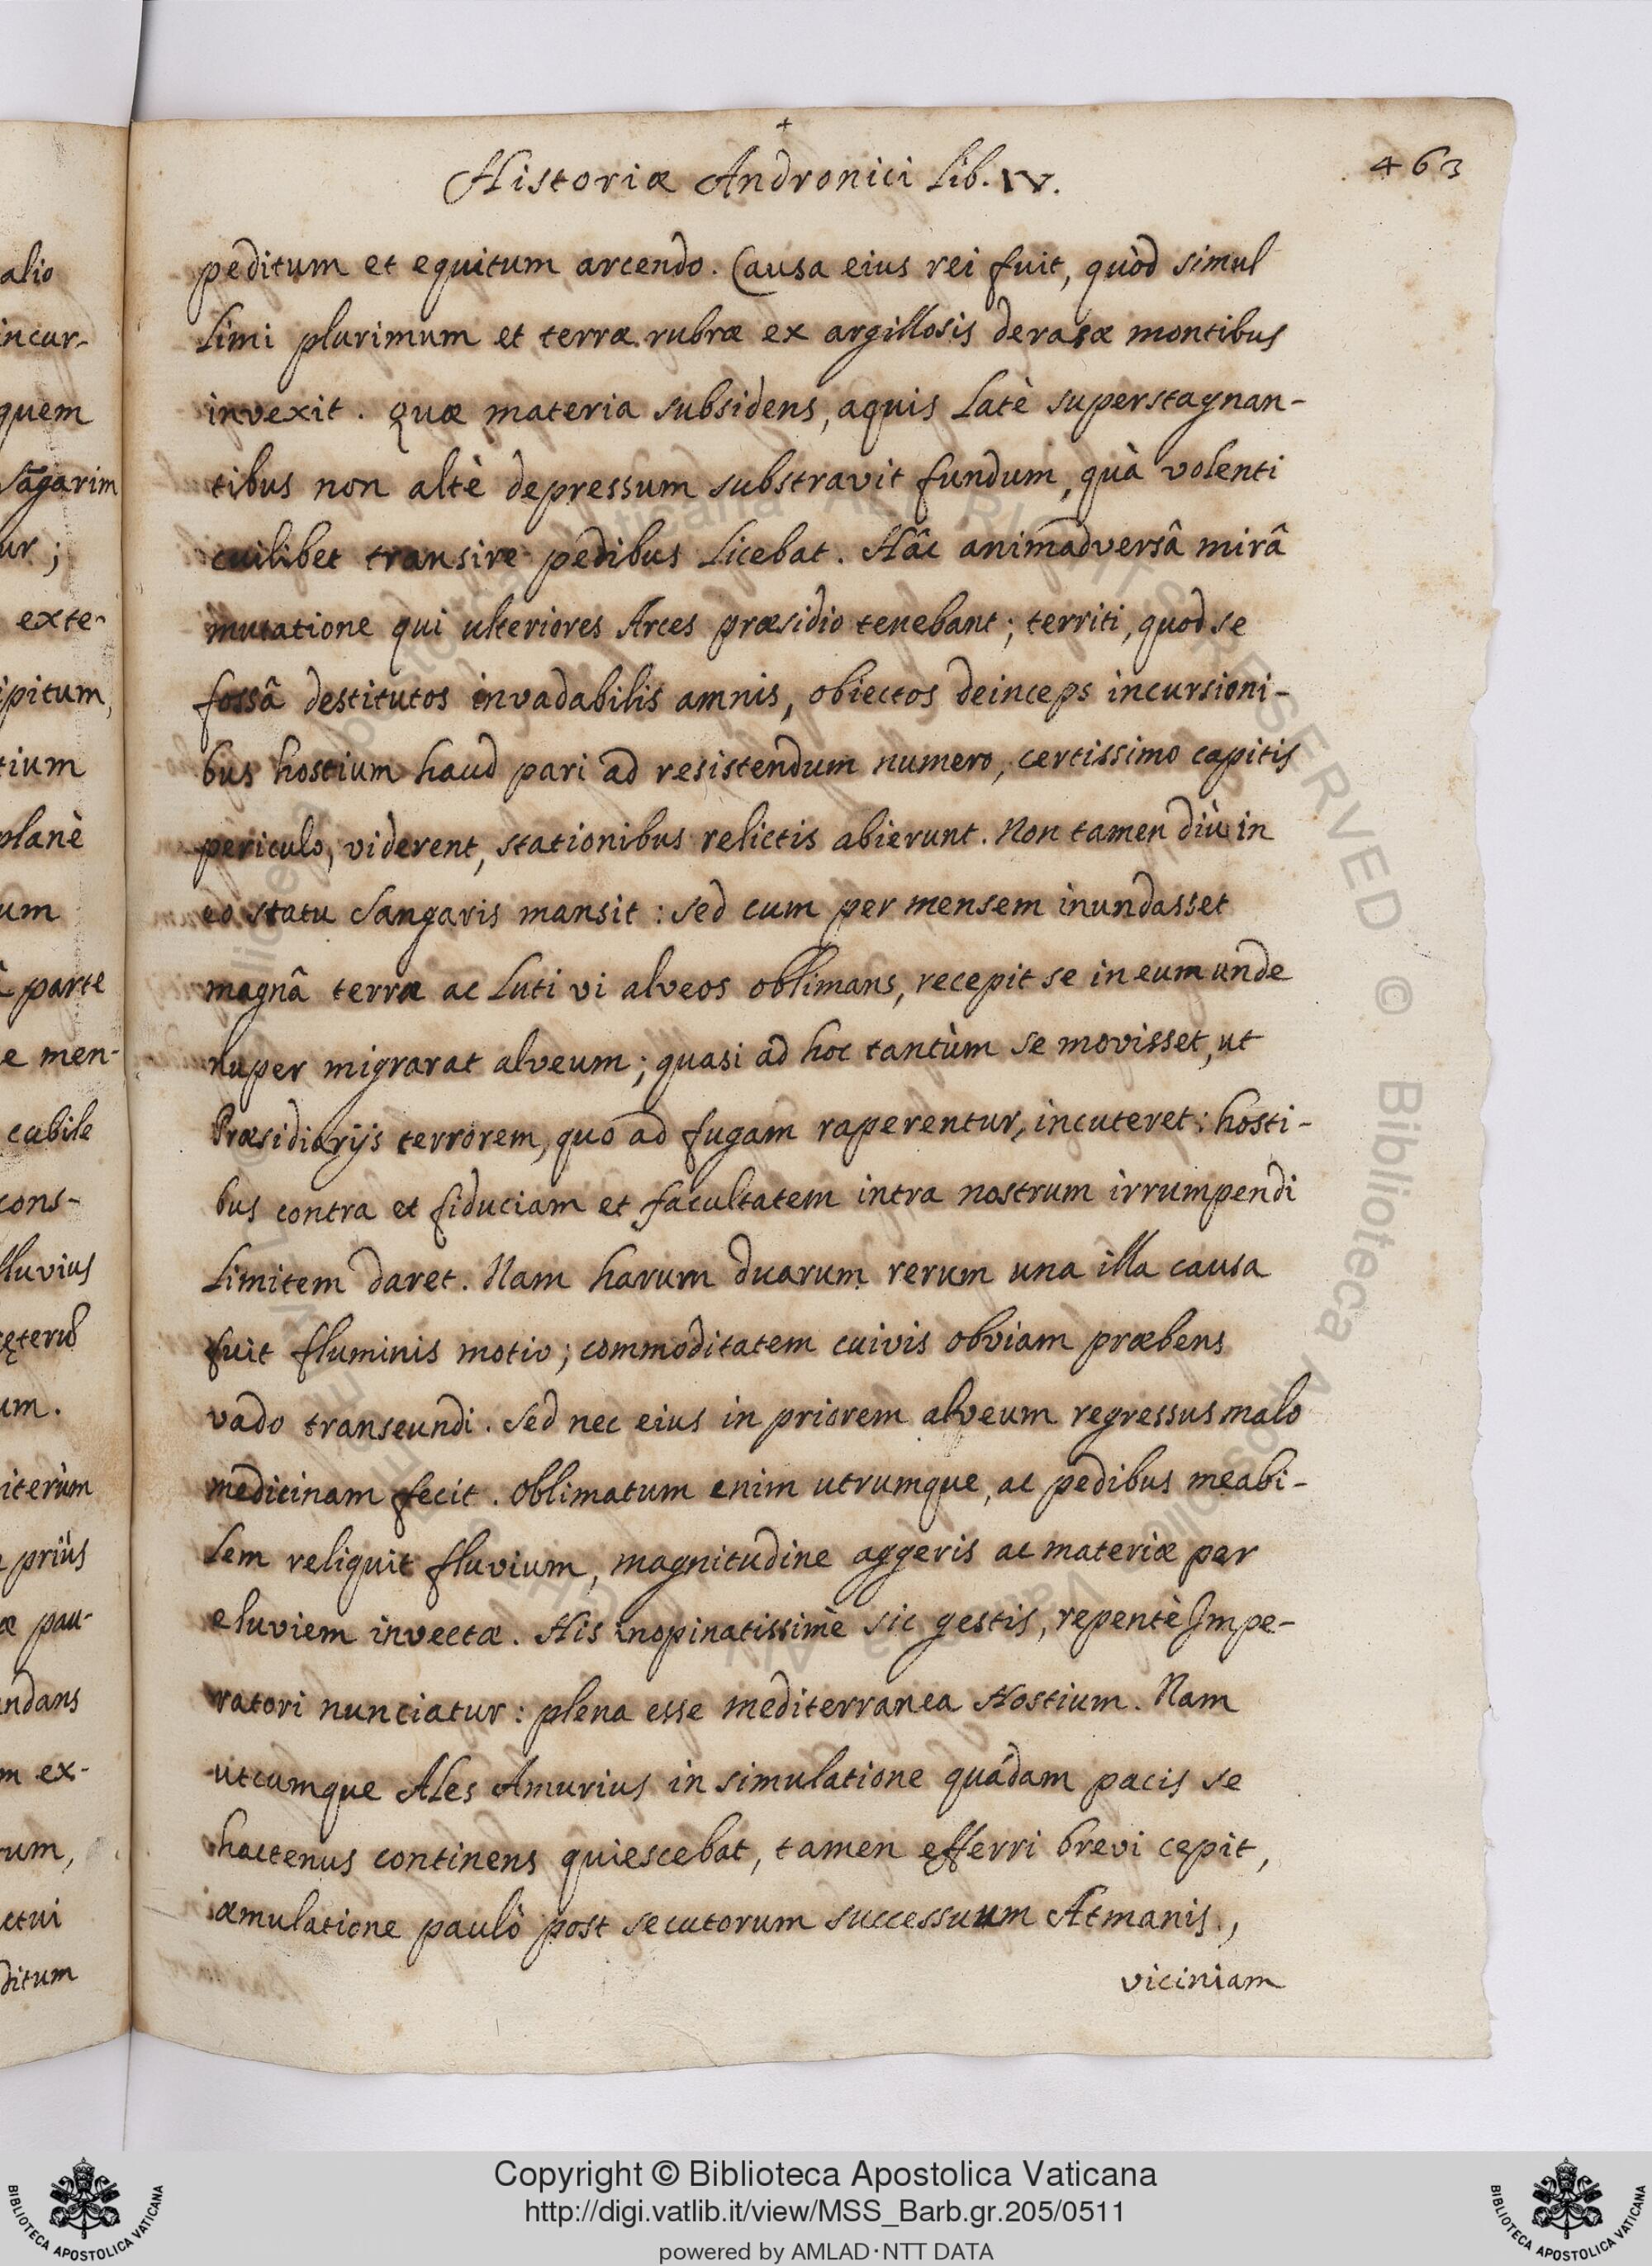 Historiæ Andronici Lib. IV.
463
peditum et equitum arcendo. Causa eius rei fuit, quòd simul
Limi plurimum et terræ rubræ ex argillosis derasæ montibus
invexit. Quæ materia subsidens, aquis Latè superstagnan-
tibus non altè depressum substravit fundum, quà volenti
cuilibet transire pedibus Licebat. Hâc animadversâ mirâ
mutatione qui ulteriores Arces præsidio tenebant; territi, quod se
fossâ destitutos invadabilis amnis, obiectos deinceps incursioni-
bus hostium haud pari ad resistendum numero, certissimo capitis
periculo, viderent, stationibus relictis abierunt. Non tamen diù in
eo statu Sangaris mansit: sed cum per mensem inundasset
magnâ terræ ac Luti vi alveos oblimans, recepit se in eum unde
nuper migrarat alveum; quasi ad hoc tantùm se movisset, ut
Præsidiarijs terrorem, quo ad fugam raperentur, incuteret: hosti-
bus contra et fiduciam et facultatem intra nostrum irrumpendi
Limitem daret. Nam harum duarum rerum una illa causa
fuit fluminis motio; commoditatem cuivis obviam præbens
vado transeundi. Sed nec eius in priorem alveum regressus malo
medicinam fecit. Oblimatum enim utrumque, ac pedibus meabi-
lem reliquit fluvium, magnitudine aggeris ac materiæ per
eluviem invectæ. His inopinatissimè sic gestis, repentè Impe-
ratori nunciatur: plena esse mediterranea Hostium. Nam
utcumque Ales Amurius in simulatione quádam pacis se
hactenus continens quiescebat, tamen efferri brevi cepit,
æmulatione paulò post secutorum successuum Atmanis,
viciniam
alio
incur-
quem
Sãgarim
ur;
exte-
ipitum,
tium
planè
um
parte
e men-
cubile
cons-
fluvius
cęterũ
um.
iterùm
priùs
æ pau-
ndans
m ex-
rum,
ctui
ditum
Copyright © Biblioteca Apostolica Vaticana
http://digi.vatlib.it/view/MSS_Barb.gr.205/0511
powered by AMLAD·NTT DATA
BIBLIOTECA APOSTOLICA VATICANA
BIBLIOTECA APOSTOLICA VATICANA